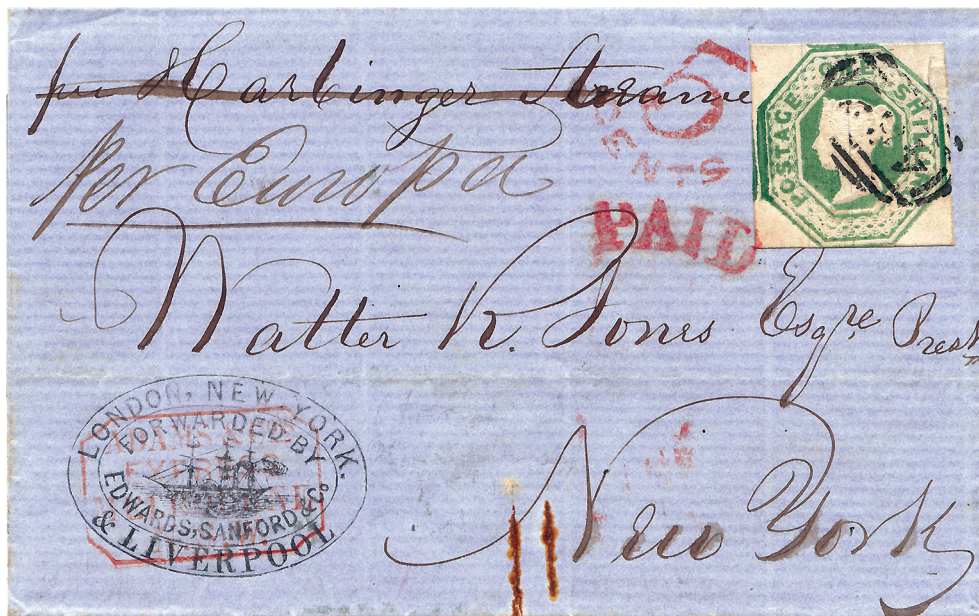 per Harbinger Steamer
per Europa
5
CENTS
PAID
POSTAGE ONE SHILLING
Walter R. Jones Esqre Prest
New York
LONDON, NEW YORK.
& LIVERPOOL
FORWARDED BY
EDWARDS, SANFORD & Co
ADAMS & CO
EXPRESS